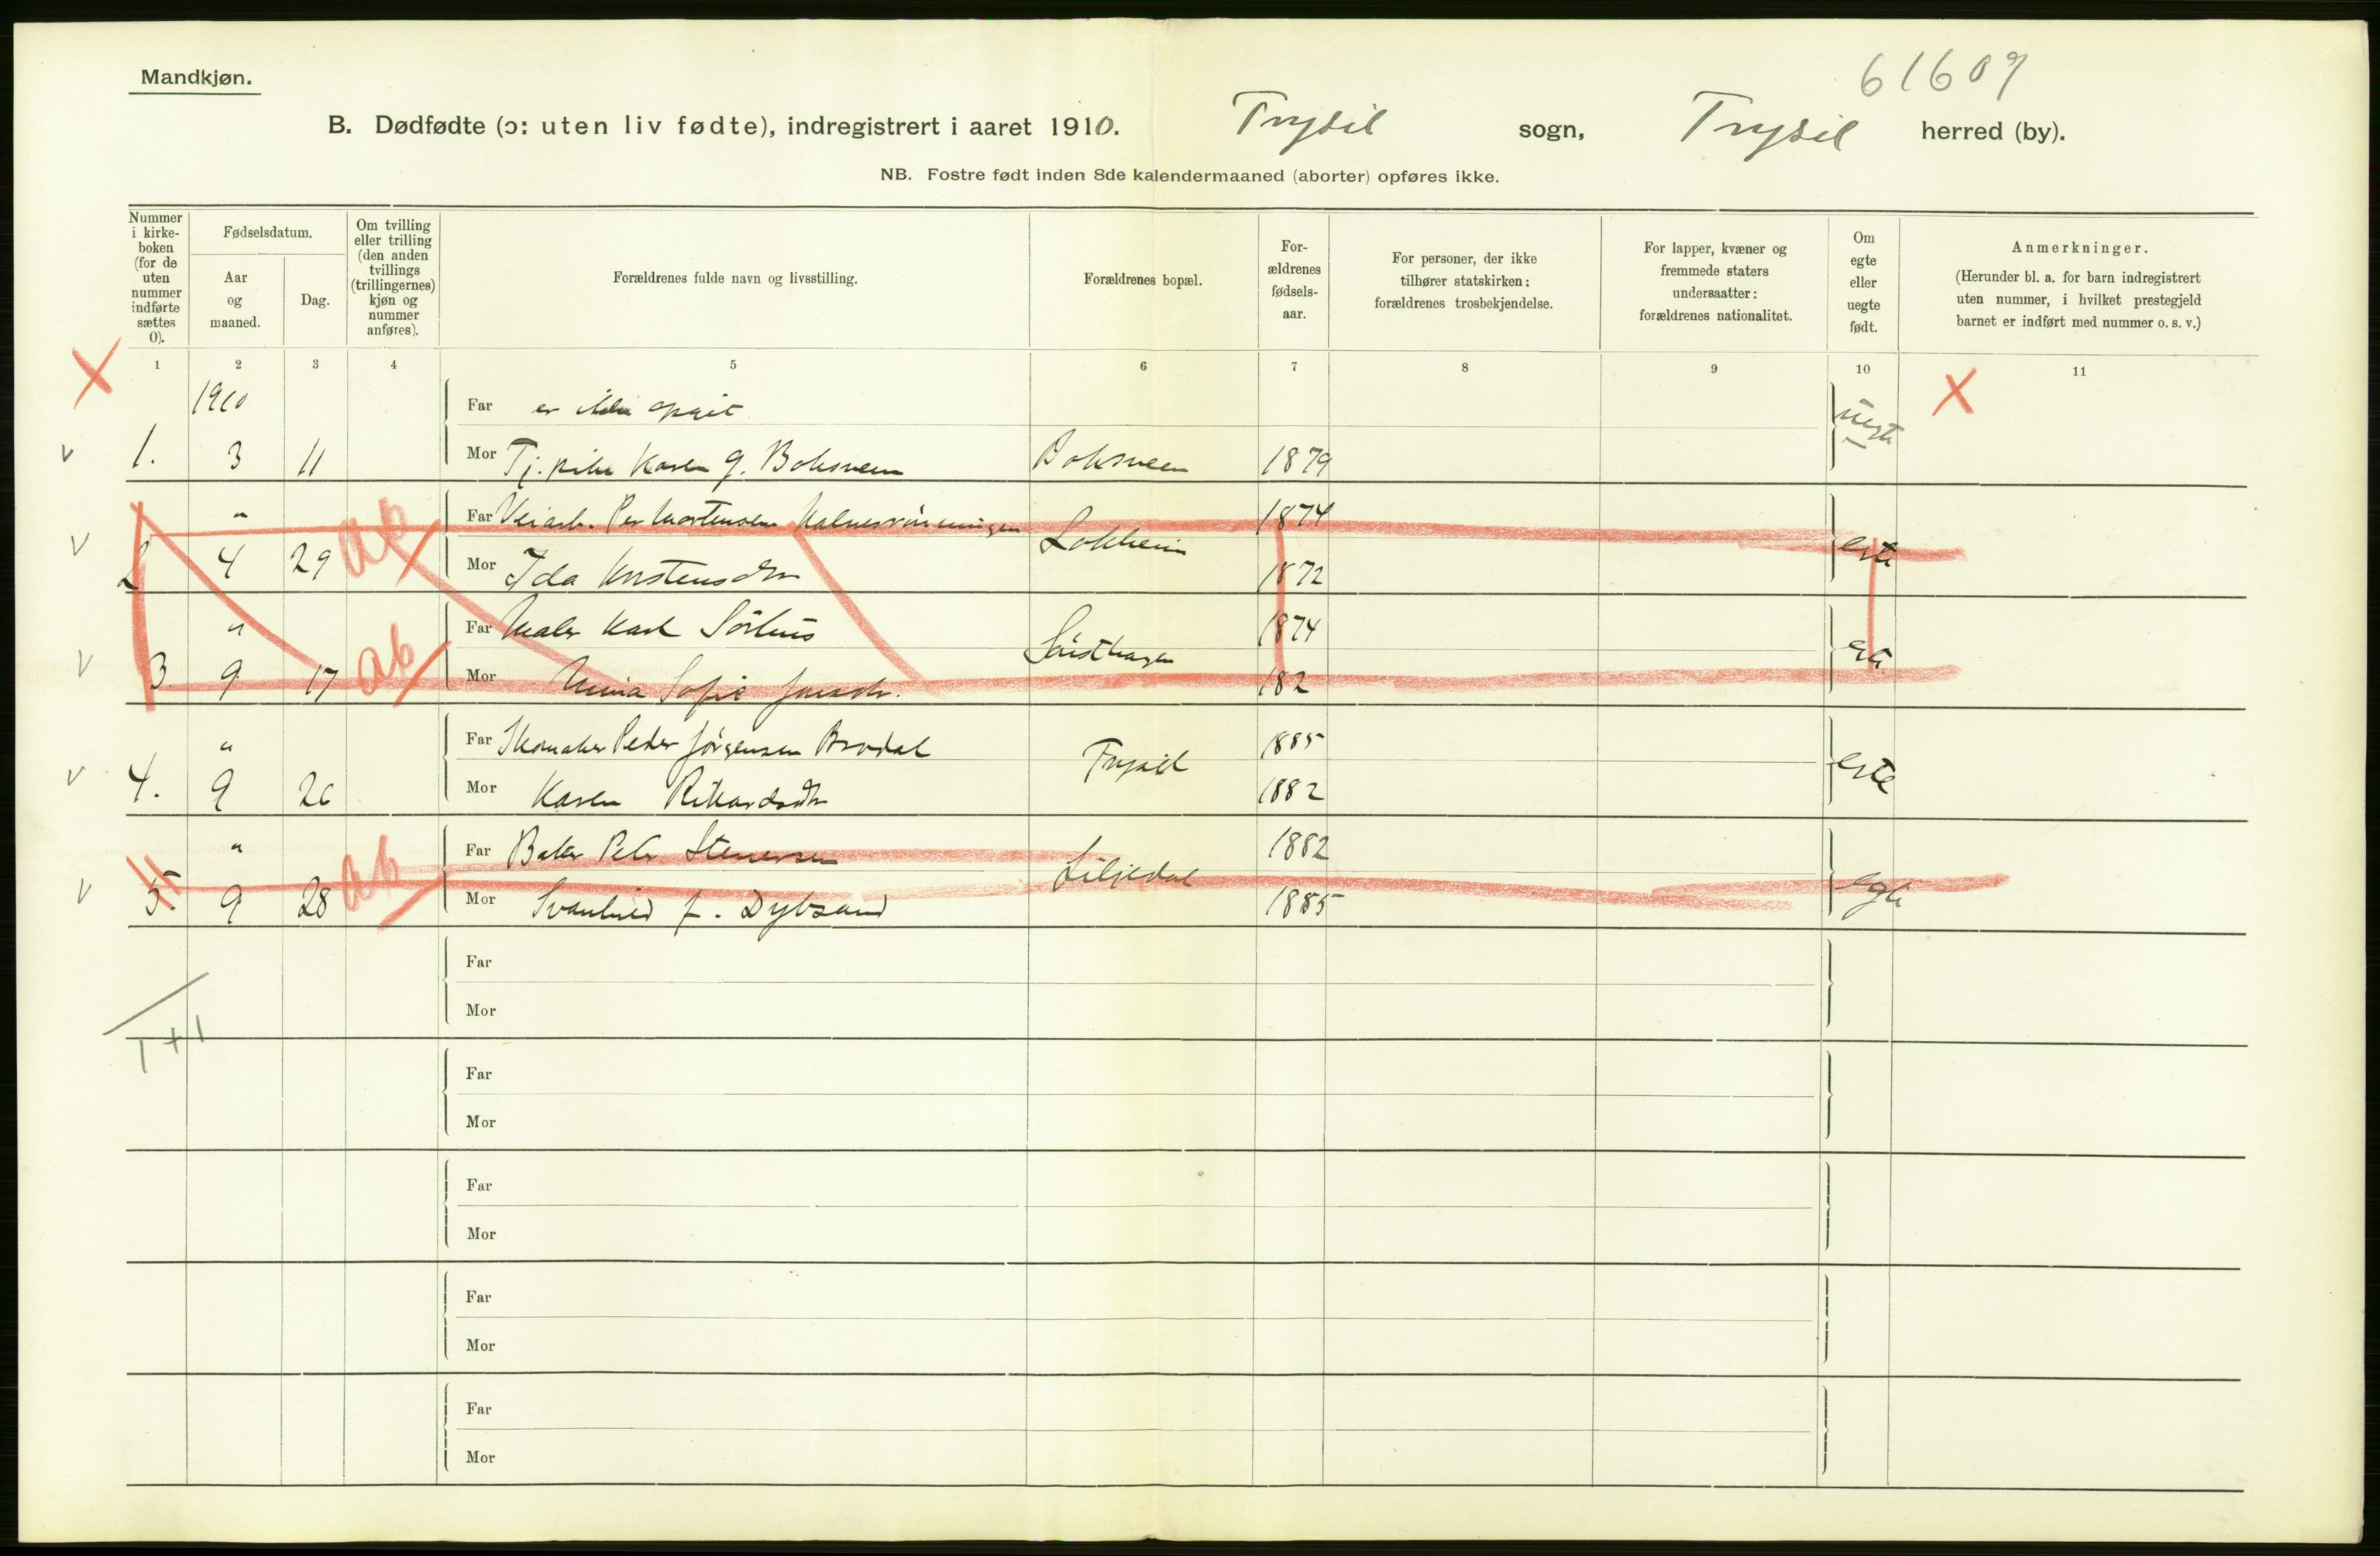 61609
Mandkjøn.
B. Dødfødte (ɔ: uten liv fødte), indregistrert i aaret 1910. Trysil sogn, Trysil herred (by).
NB. Fostre født inden 8de kalendermaaned (aborter) opføres ikke.
Nummer i kirke-boken (for de uten nummer indførte sættes 0).
Fødselsdatum.
Aar og maaned.
Dag.
Om tvilling eller trilling (den anden tvillings (trillingernes) kjøn og nummer anføres).
Forældrenes fulde navn og livsstilling.
Forældrenes bopæl.
For-ældrenes fødsels-aar.
For personer, der ikke tilhører statskirken: forældrenes trosbekjendelse.
For lapper, kvæner og fremmede staters undersaatter: forældrenes nationalitet.
Om egte eller uegte født.
Anmerkninger.
(Herunder bl. a. for barn indregistrert uten nummer, i hvilket prestegjeld barnet er indført med nummer o. s. v.)
1 2 3 4 5 6 7 8 9 10 11
X 1910 Far er ikke opgit uegte X
v 1. 3 11 Mor Tj. pike Karen G. Boksveen Boksveen 1879
" ab Far Veiarb. Per Mortensen 1874
v 2 4 29 Mor Ida Lokheim 1872 egte
" ab Far Maler Karl Sørhus 1874
v 3. 9 17 Mor Sofie 182 egte
" Far Skomaker Peder Jørgensen Brodal Trysil 1885 egte
v 4. 9 26 Mor Karen Rikardsdtr 1882
" ab Far Baker Peter Stenersen Liljedal 1882 egte
v 5. 9 28 Mor Svanhild f. Dybsand 1885
Far
Mor
1 + 1
Far
Mor
Far
Mor
Far
Mor
Far
Mor